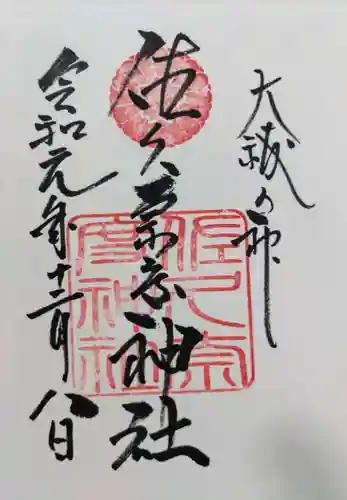 大祓の神
佐久奈度神社
令和元年十二月八日
佐久奈度神社